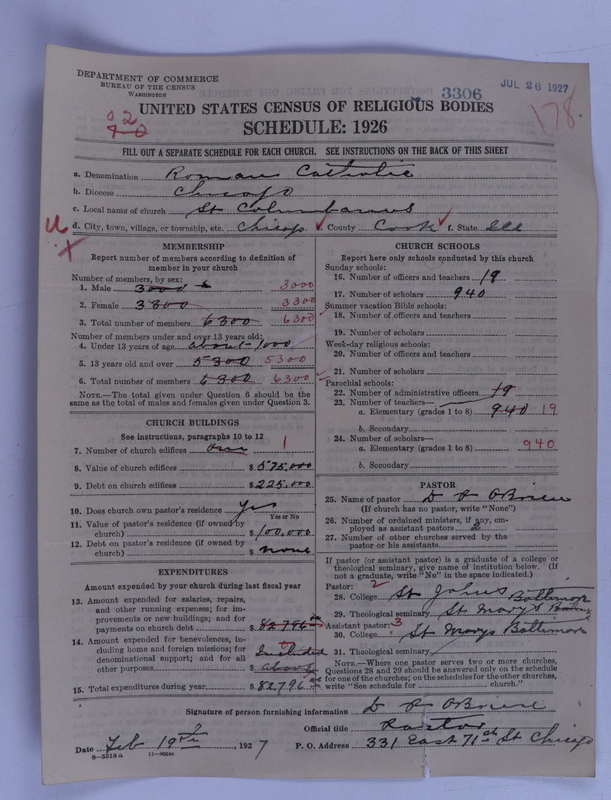 DEPARTMENT OF COMMERCE
BUREAU OF THE CENSUS
WASHINGTON
3306
JUL 26 1927
178
UNITED STATES CENSUS OF RELIGIOUS BODIES
SCHEDULE: 1926
FILL OUT A SEPARATE SCHEDULE FOR EACH CHURCH. SEE INSTRUCTIONS ON THE BACK OF THIS SHEET
a. Denomination Roman Catholic
b. Diocese Chicago
c. Local name of church St Columbanus
d. City, town, village, or township, etc. Chicago e. County Cook f. State Ill
MEMBERSHIP
Report number of members according to definition of
member in your church
Number of members, by sex:
1. Male 3000 3000
2. Female 3300 3300
3. Total number of members 6300 6300
Number of members under and over 13 years old:
4. Under 13 years of age about 1000
5. 13 years old and over 5300 5300
6. Total number of members 6300 6300
NOTE.—The total given under Question 6 should be the
same as the total of males and females given under Question 3.
CHURCH BUILDINGS
See instructions, paragraphs 10 to 12
7. Number of church edifices one 1
8. Value of church edifices $ 575,000
9. Debt on church edifices $ 225.000
10. Does church own pastor's residence? yes
Yes or No
11. Value of pastor's residence (if owned by
church) $ 100,000
12. Debt on pastor's residence (if owned by
church) $ none
EXPENDITURES
Amount expended by your church during last fiscal year
13. Amount expended for salaries, repairs,
and other running expenses; for im-
provements or new buildings; and for
payments on church debt $ 82796
14. Amount expended for benevolences, in-
cluding home and foreign missions; for
denominational support; and for all
other purposes Included
$ above
15. Total expenditures during year $ 82,796
CHURCH SCHOOLS
Report here only schools conducted by this church
Sunday schools:
16. Number of officers and teachers 19
17. Number of scholars 940
Summer vacation Bible schools:
18. Number of officers and teachers
19. Number of scholars
Week-day religious schools:
20. Number of officers and teachers
21. Number of scholars
Parochial schools:
22. Number of administrative officers 19
23. Number of teachers—
a. Elementary (grades 1 to 8) 940 19
b. Secondary
24. Number of scholars—
a. Elementary (grades 1 to 8) 940
b. Secondary
PASTOR
25. Name of pastor D P OBrien
(If church has no pastor, write "None")
26. Number of ordained ministers, if any, em-
ployed as assistant pastors 2
27. Number of other churches served by the
pastor or his assistants
If pastor (or assistant pastor) is a graduate of a college or
theological seminary, give name of institution below. (If
not a graduate, write "No" in the space indicated.)
Pastor: 2
28. College St Johns Baltimore
29. Theological seminary St Marys
Assistant pastor: 3
30. College St Marys Baltimore
31. Theological seminary
NOTE.—Where one pastor serves two or more churches,
Questions 28 and 29 should be answered only on the schedule
for one of the churches; on the schedules for the other churches,
write "See schedule for church."
Signature of person furnishing information D P OBrien
Official title Pastor
Date Feb 19th, 1927 P. O. Address 331 East 71st St Chicago
8—5518a 11—9554a